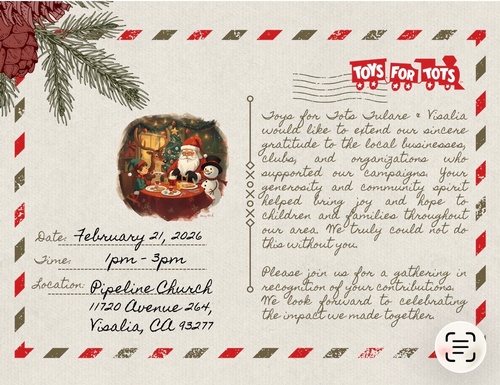 TOYS FOR TOTS
Toys for Tots Tulare & Visalia
would like to extend our sincere
gratitude to the local businesses,
clubs, and organizations who
supported our campaigns. Your
generosity and community spirit
helped bring joy and hope to
children and families throughout
our area. We truly could not do
this without you.
Please join us for a gathering in
recognition of your contributions.
We look forward to celebrating
the impact we made together.
Date: February 21, 2026
Time: 1pm - 3pm
Location: Pipeline Church
11720 Avenue 264,
Visalia, CA 93277